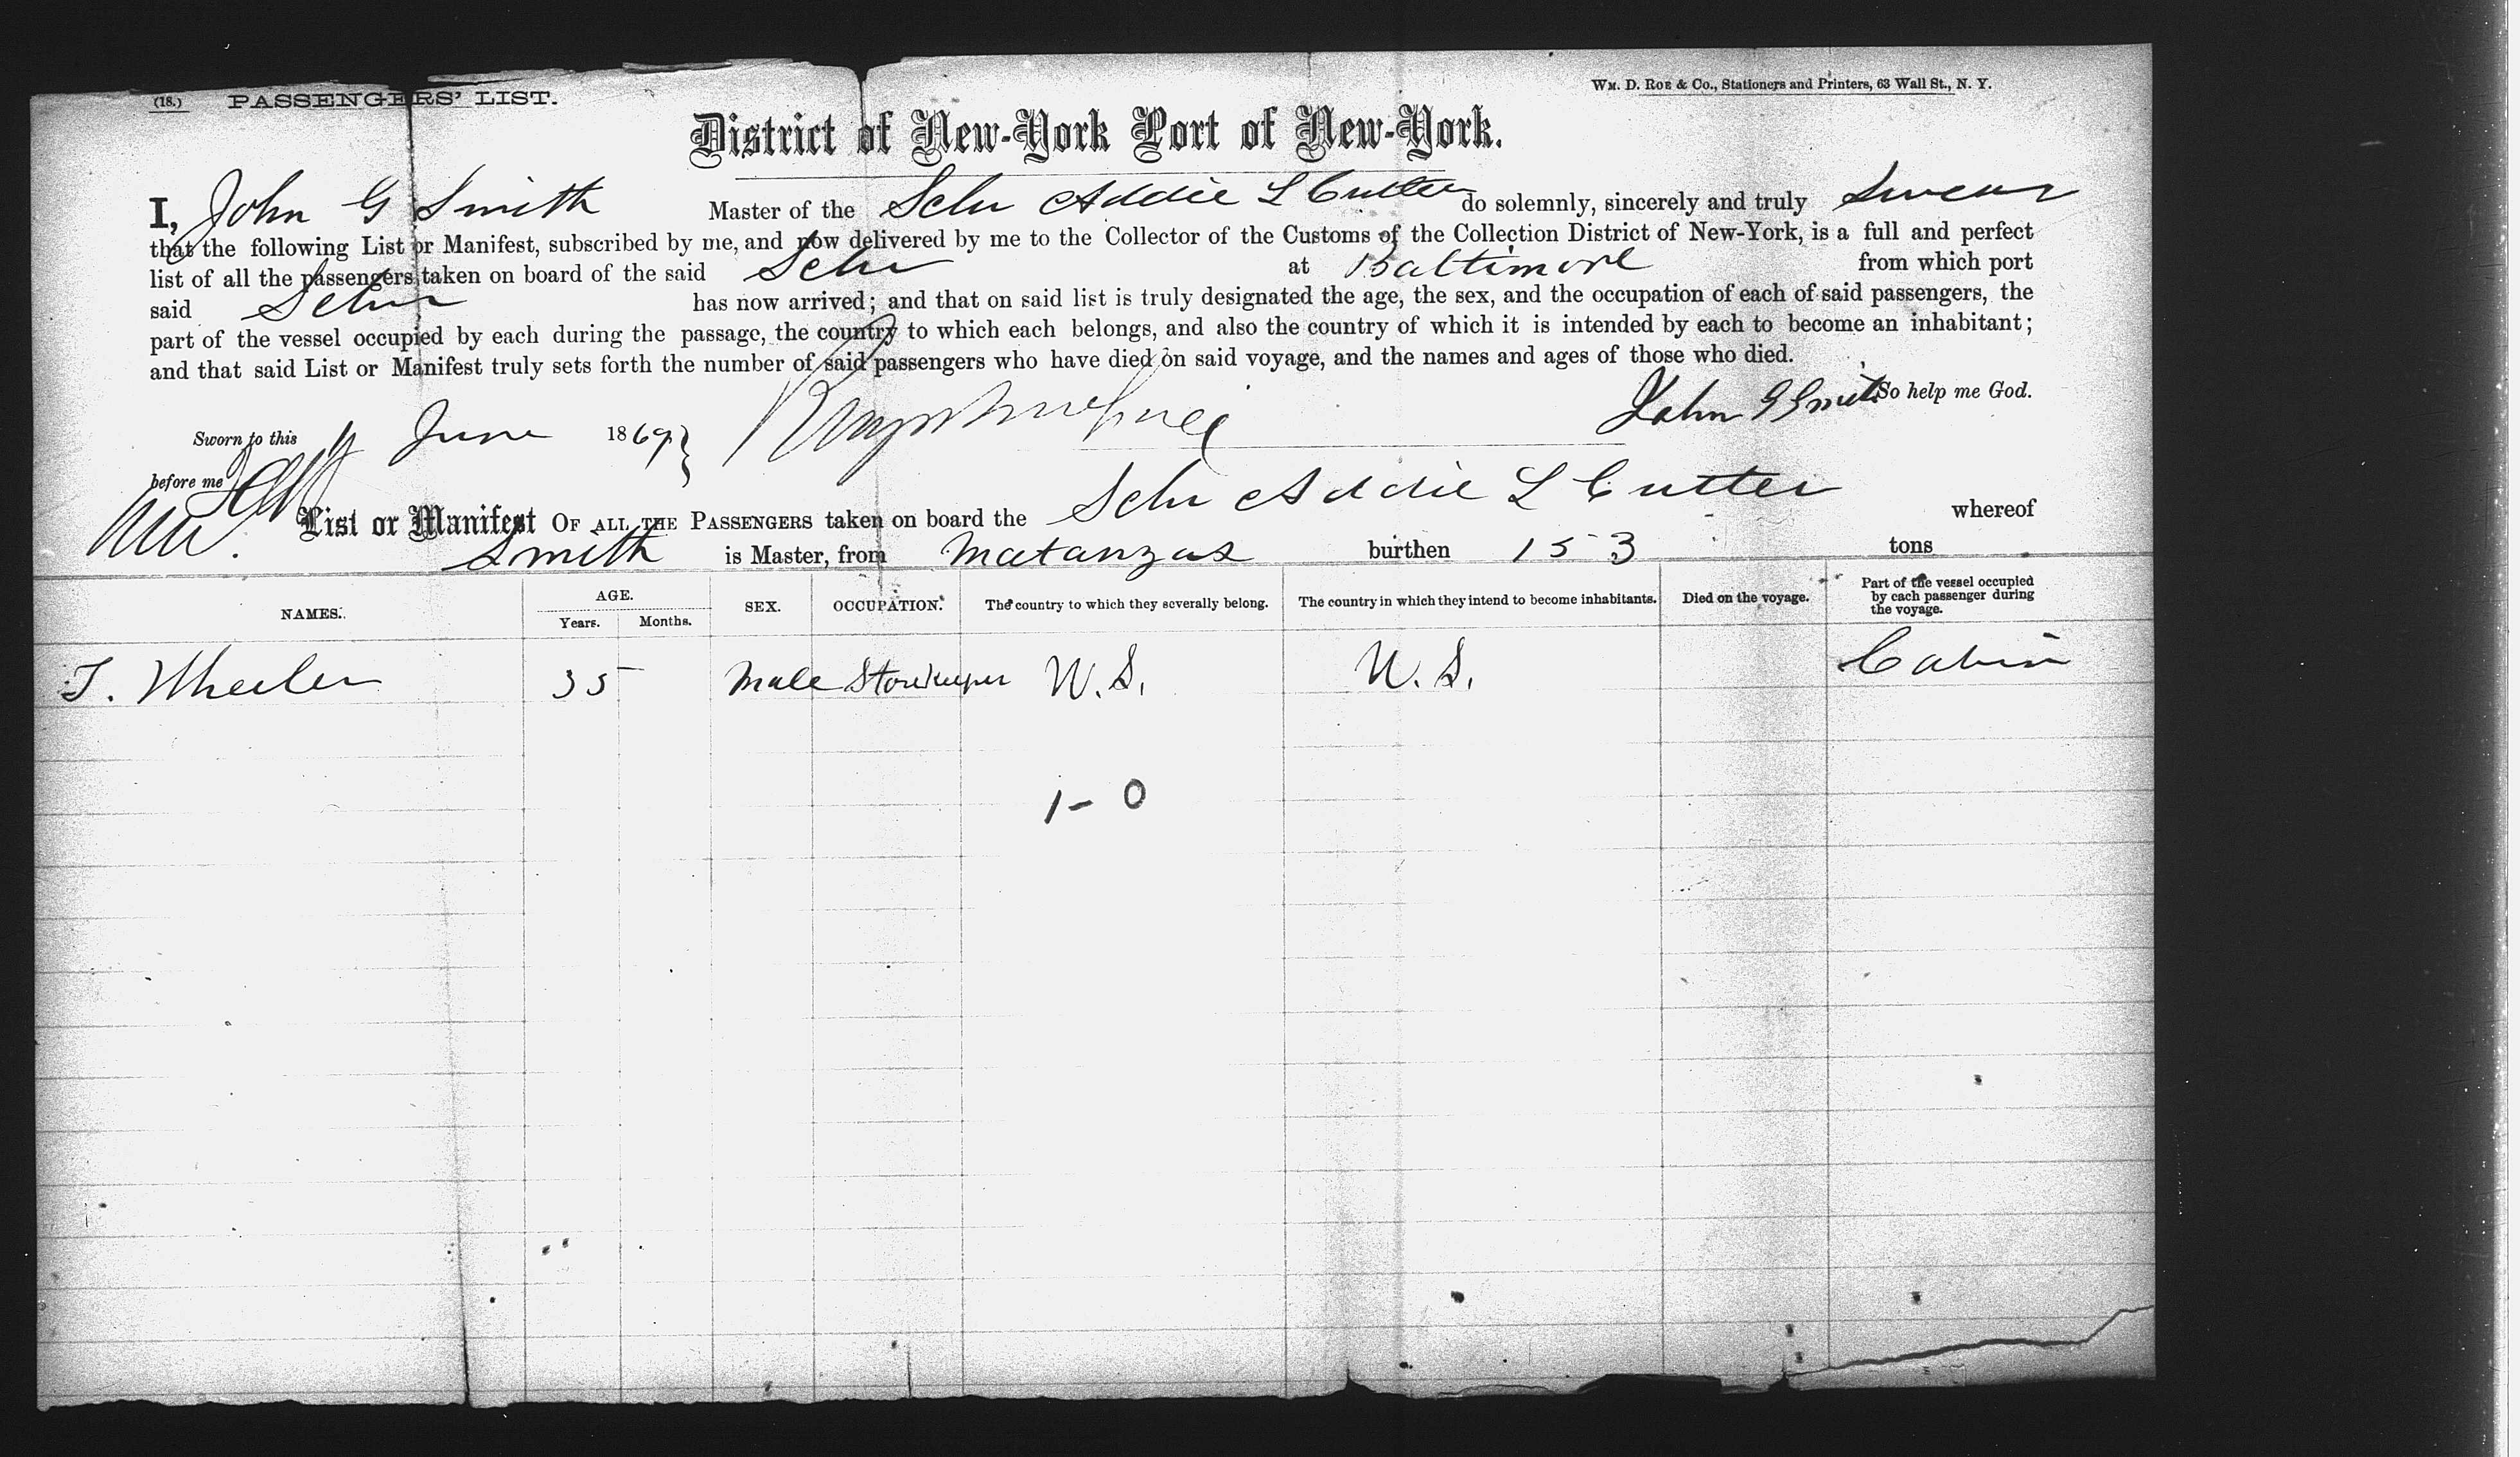 (18.) PASSENGERS' LIST.
Wm. D. Roe & Co., Stationers and Printers, 63 Wall St., N. Y.
District of New-York Port of New-York.
I, John G Smith Master of the Schr Addie L Cutter do solemnly, sincerely and truly Swear
that the following List or Manifest, subscribed by me, and now delivered by me to the Collector of the Customs of the Collection District of New-York, is a full and perfect
list of all the passengers taken on board of the said Schr at Baltimore from which port
said Schr has now arrived; and that on said list is truly designated the age, the sex, and the occupation of each of said passengers, the
part of the vessel occupied by each during the passage, the country to which each belongs, and also the country of which it is intended by each to become an inhabitant;
and that said List or Manifest truly sets forth the number of said passengers who have died on said voyage, and the names and ages of those who died.
So help me God.
John G Smith
Sworn to this June 1869
before me
List or Manifest OF ALL THE PASSENGERS taken on board the Schr Addie L Cutter whereof
Smith is Master, from Matanzas burthen 153 tons
NAMES. AGE. SEX. OCCUPATION. The country to which they severally belong. The country in which they intend to become inhabitants. Died on the voyage. Part of the vessel occupied by each passenger during the voyage.
Years. Months.
T. Wheeler 35 Male Storekeeper U.S. U.S. Cabin
1 - 0